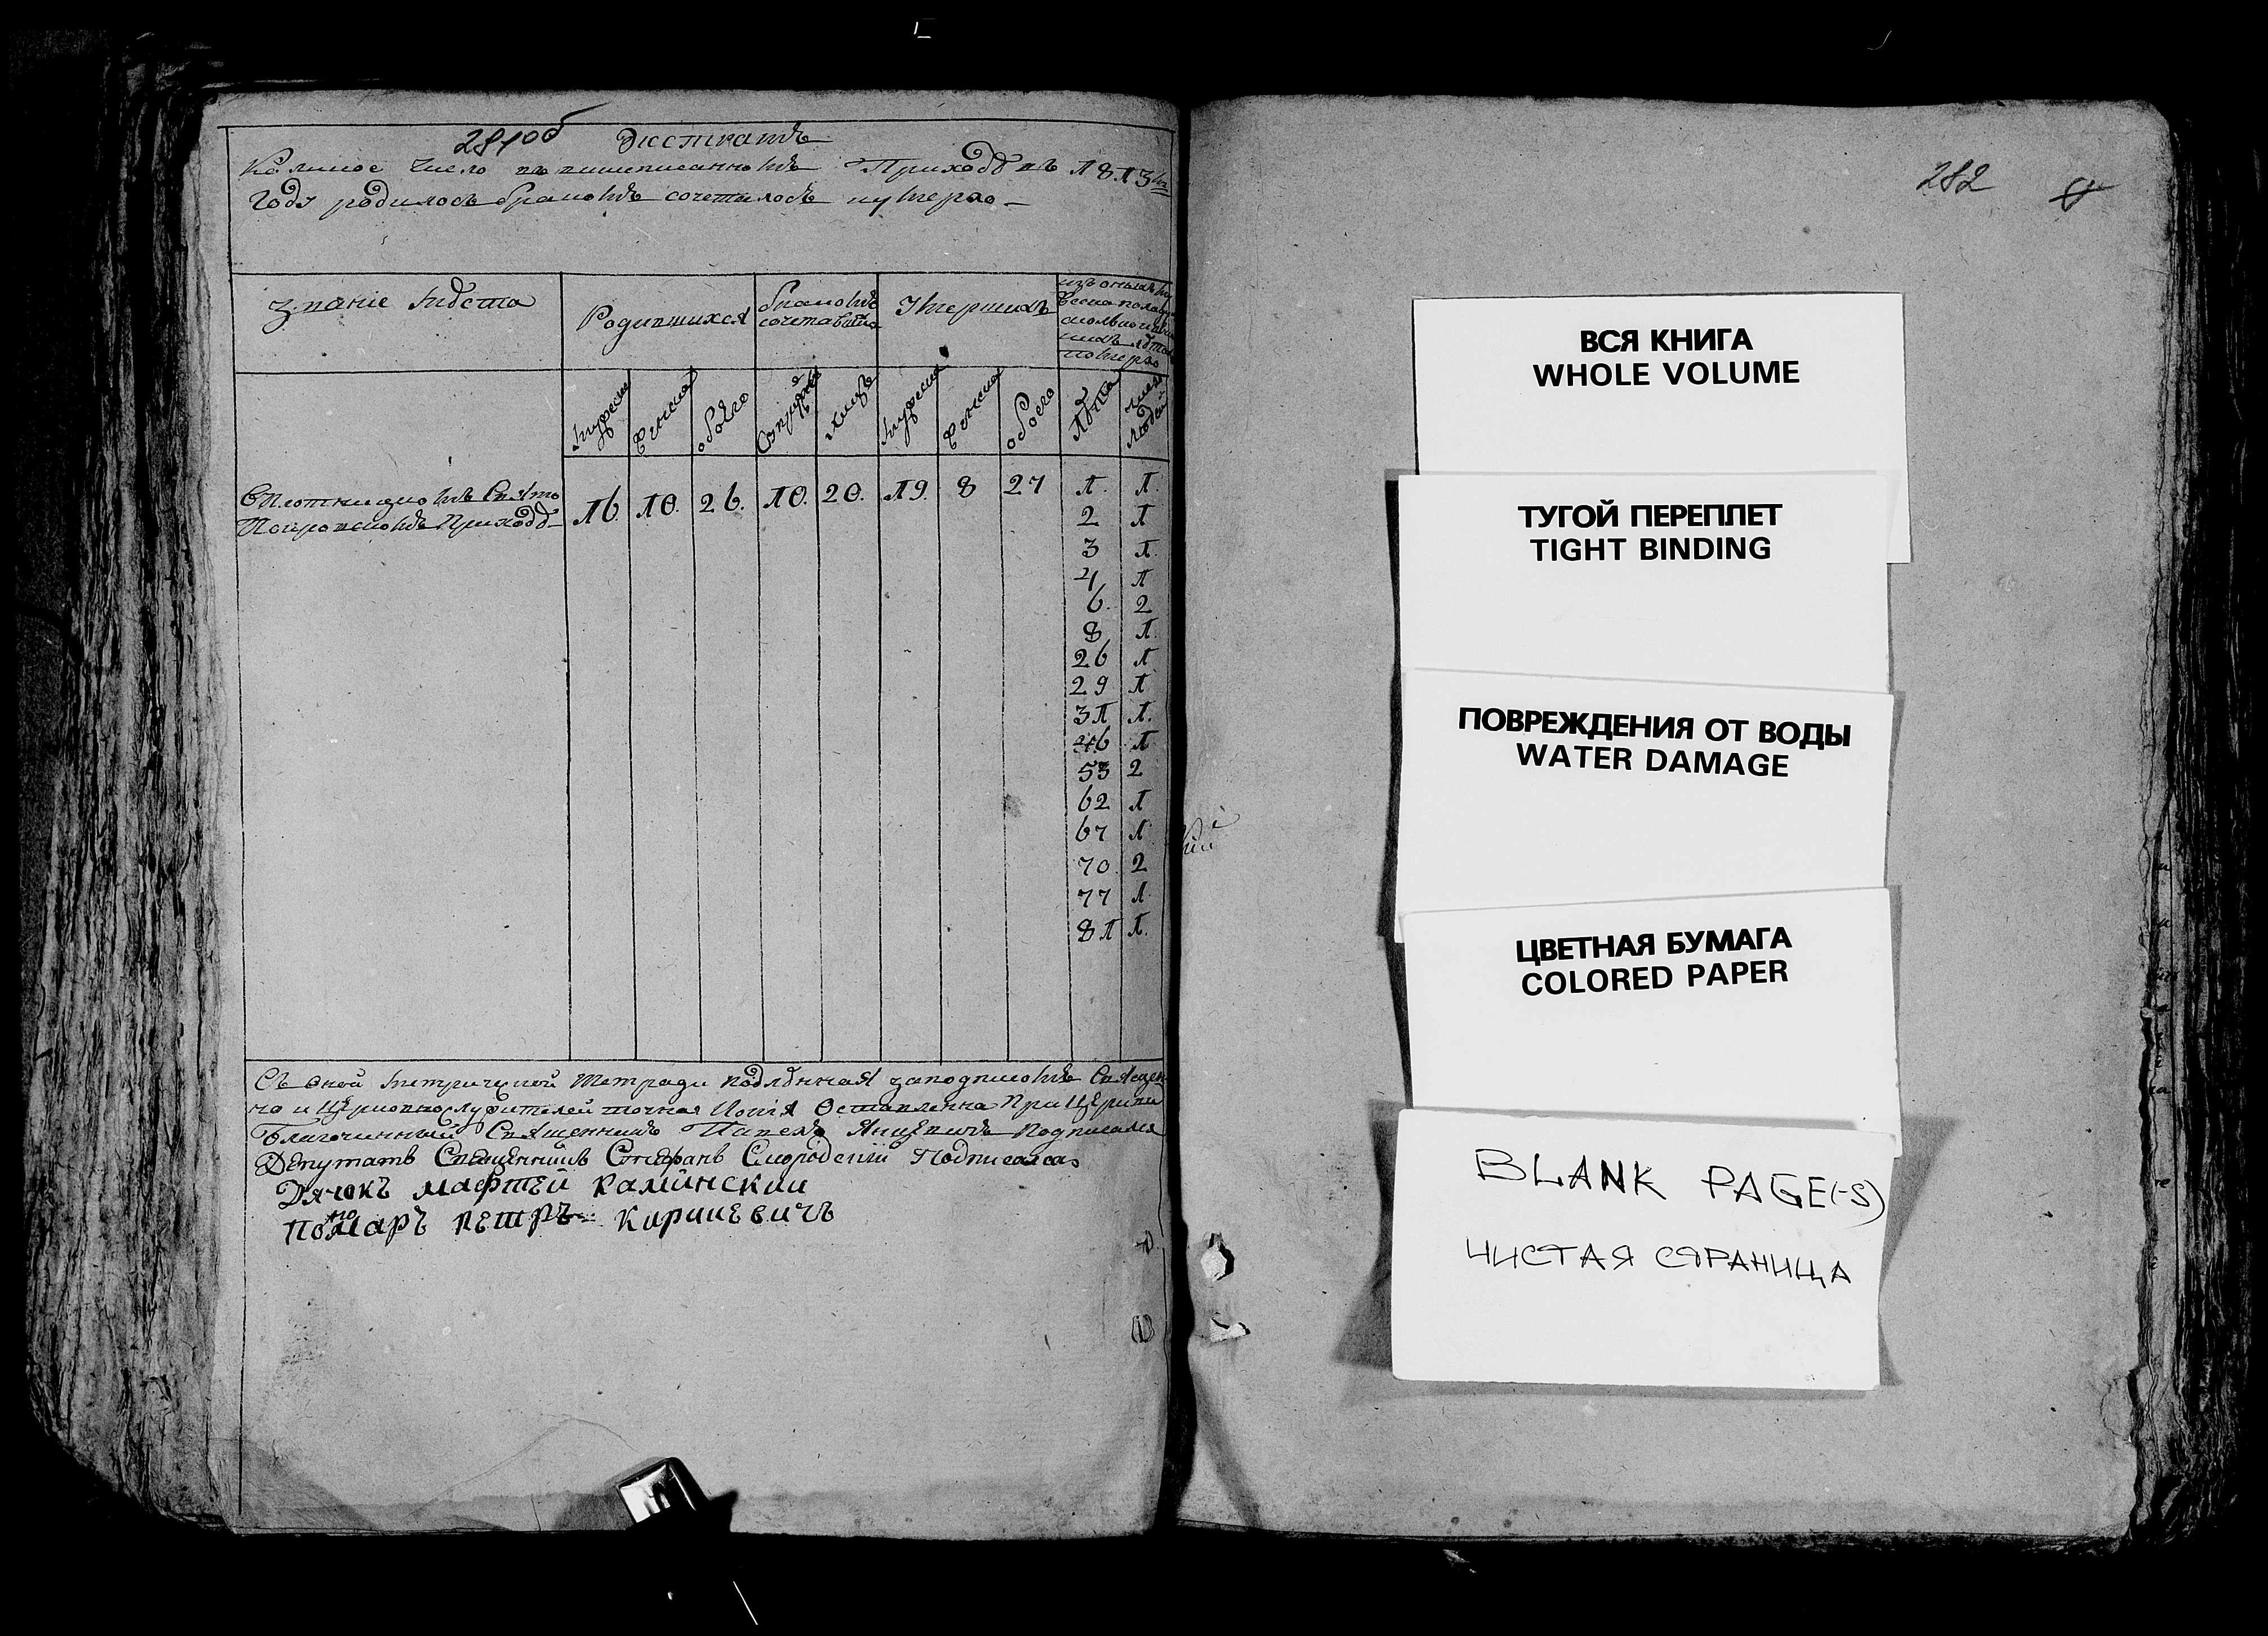 281об
Экстрактъ
Коликое Число въ вышеписанномъ Приходѣ въ 1813мъ
Году родилось бракомъ сочеталось и умерло
Званіе мѣста
Родившихся
бракомъ сочетавшихся
Умершихъ
изъ оныхъ
столько
лѣтъ
померло
мужеска
женска
обоего
Супружес
Лицъ
мужеска
женска
обоего
Лѣта
число людей
Въ Свято
Покровскомъ Приходѣ
16. 10. 26. 10. 20. 19. 8 27
1. 1.
2 1
3 1.
4 1
6. 2
8 1.
26 1
29 1
31 1.
46 1
53 2
62 1
67 1
70. 2
77 1
81 1.
Съ сной метричной тетради подлѣнная заподписомъ Священ
но и Церковнослужителей точная Копія Оставленна При Церкви
Благочинный Священникъ Павелъ Подписался
Депутатъ Священникъ Стефанъ Смородскій Подписался
Дячокъ мафтей каминский
Пономаръ петръ Киркевичъ
282
ВСЯ КНИГА
WHOLE VOLUME
ТУГОЙ ПЕРЕПЛЕТ
TIGHT BINDING
ПОВРЕЖДЕНИЯ ОТ ВОДЫ
WATER DAMAGE
ЦВЕТНАЯ БУМАГА
COLORED PAPER
BLANK PAGE(-S)
ЧИСТАЯ СТРАНИЦА